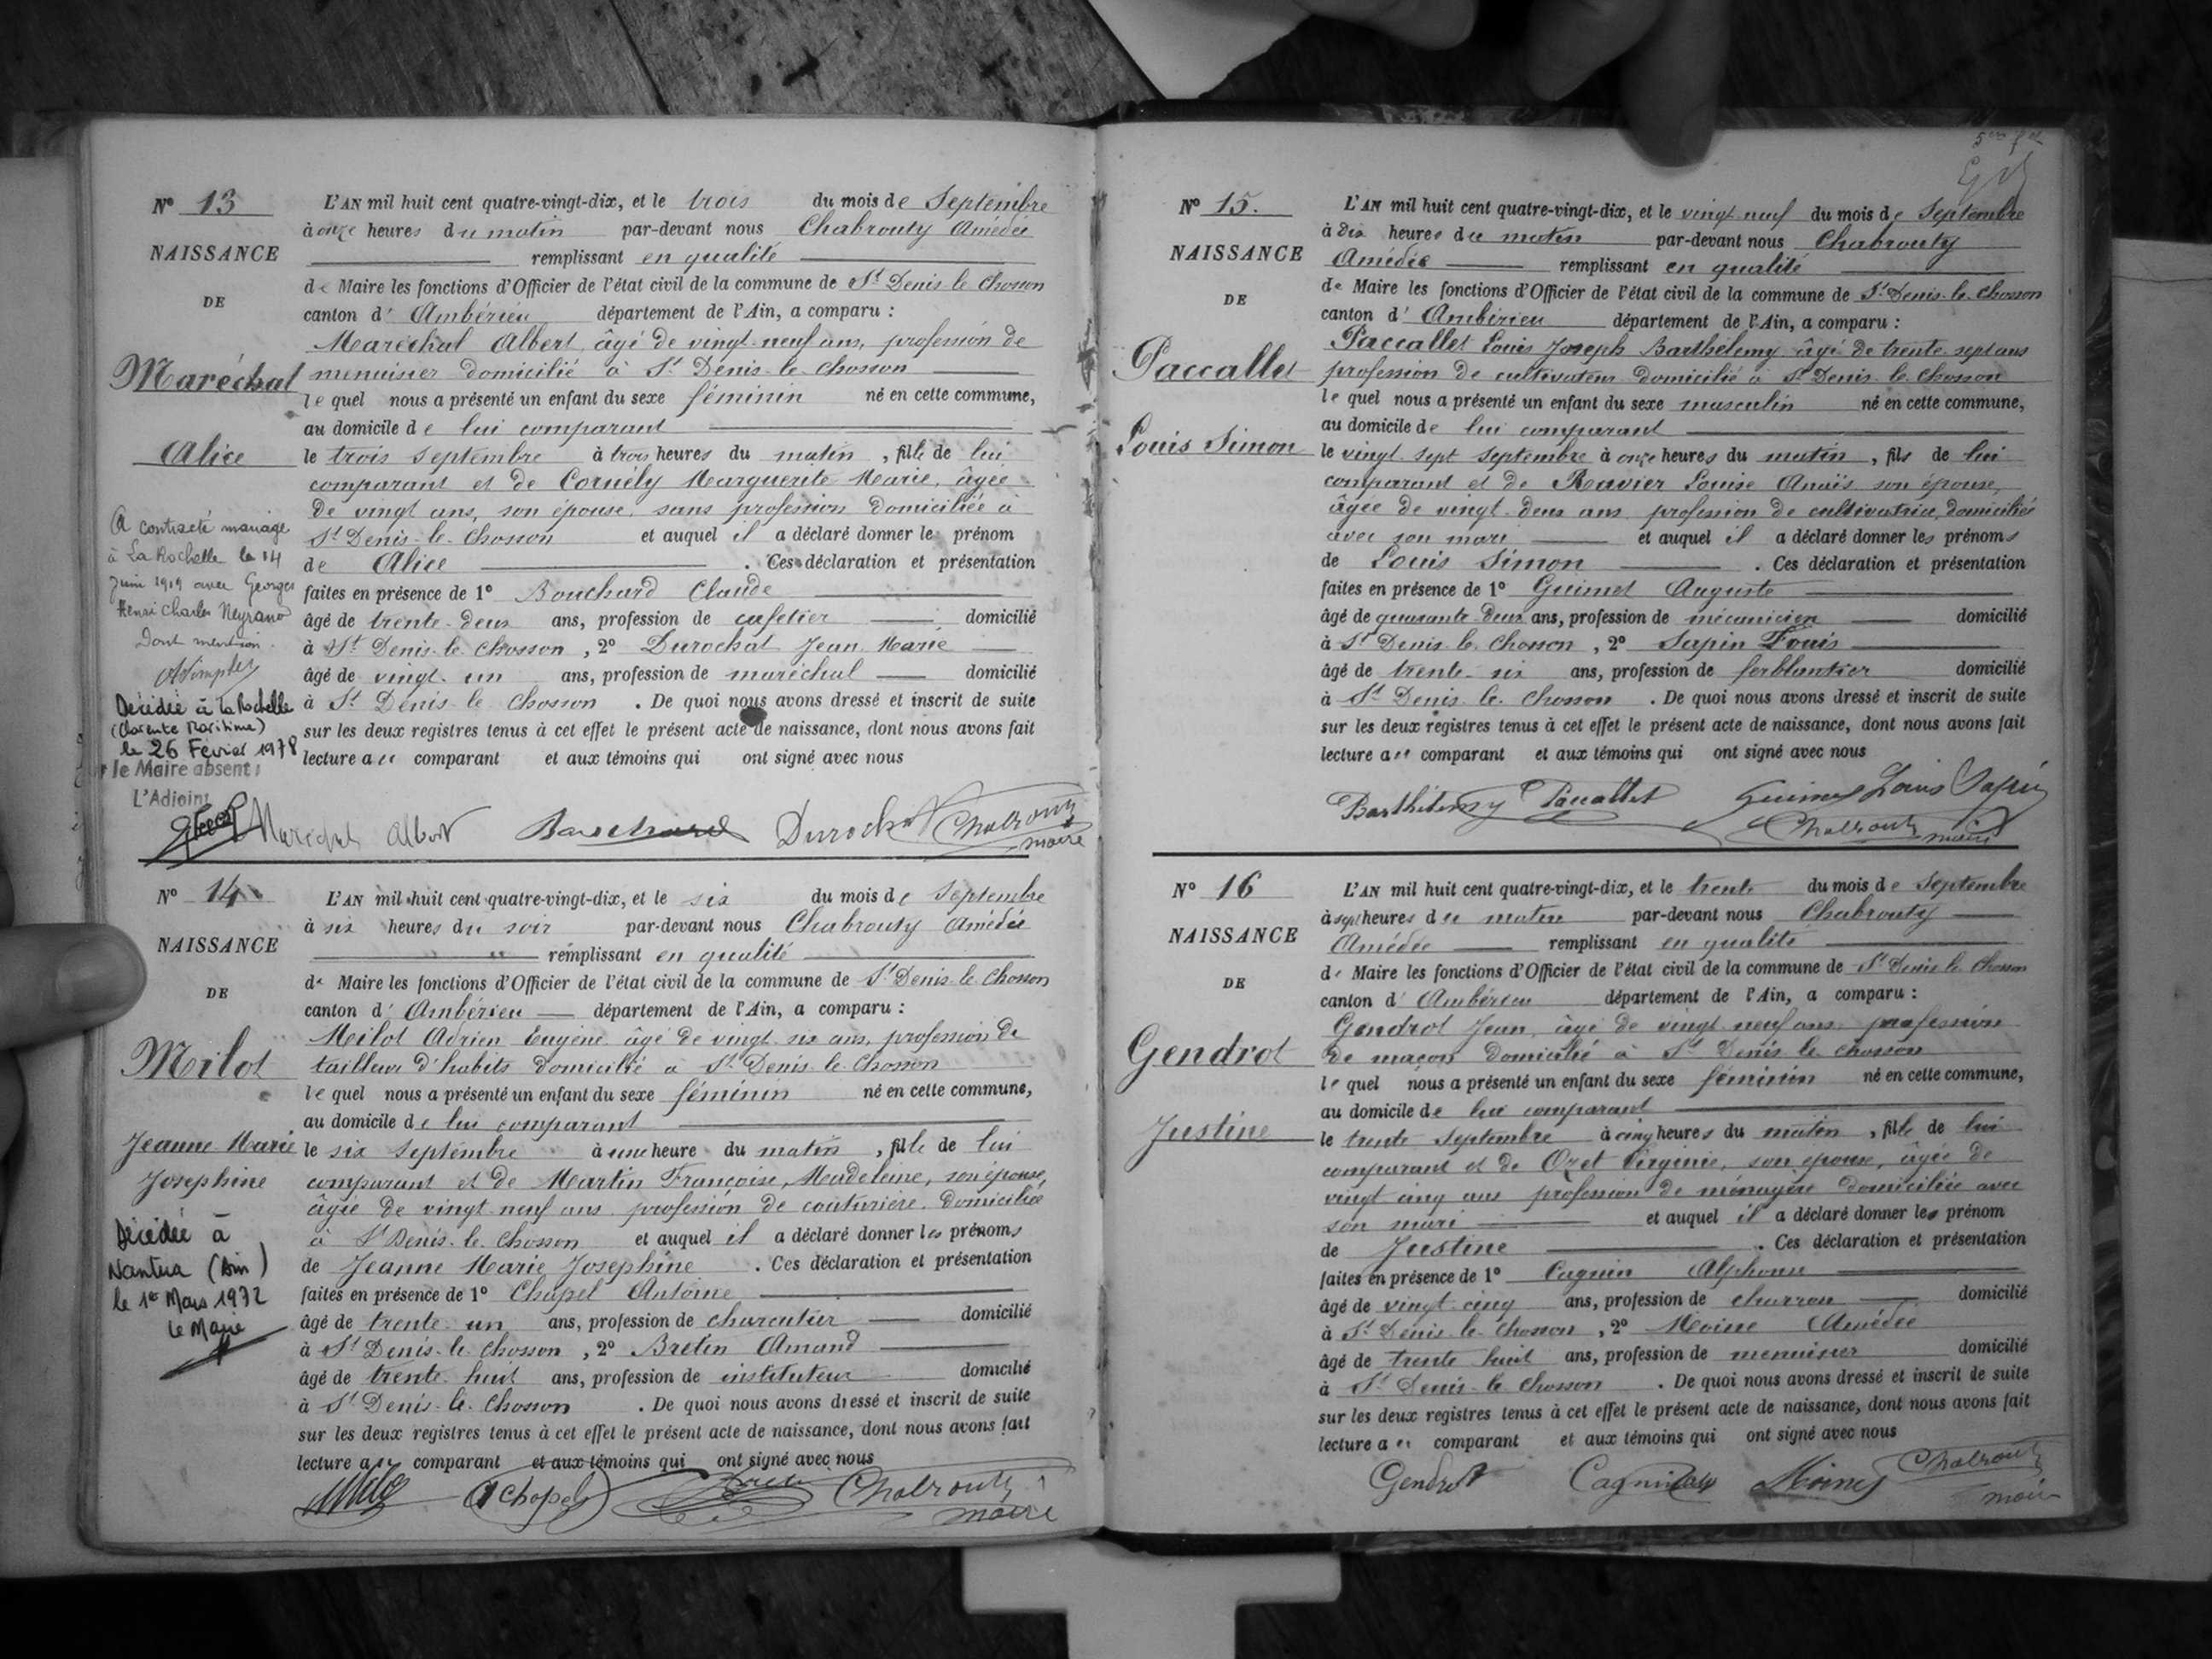 N° 13
NAISSANCE
DE
Maréchal
Alice
A contracté mariage
à La Rochelle le 14
Juin 1919 avec Georges
Henri Charles Neyrand
Dont mention
Décédée à La Rochelle
(Charente Maritime)
le 26 Février 1978
le Maire absent :
L'Adjoint
L'AN mil huit cent quatre-vingt-dix, et le trois du mois de Septembre
à onze heures du matin par-devant nous Chabrouty Amédée
remplissant en qualité
de Maire les fonctions d'Officier de l'état civil de la commune de St Denis-le-Chosson
canton d' Ambérieu département de l'Ain, a comparu :
Maréchal Albert, âgé de vingt-neuf ans, profession de
menuisier domicilié à St Denis-le-Chosson
lequel nous a présenté un enfant du sexe féminin né en cette commune,
au domicile de lui comparant
le trois Septembre à trois heures du matin, fille de lui
comparant et de Cornély Marguerite Marie, âgée
de vingt ans, son épouse, sans profession domiciliée à
St Denis-le-Chosson et auquel il a déclaré donner le prénom
de Alice . Ces déclaration et présentation
faites en présence de 1° Bouchard Claude
âgé de trente-deux ans, profession de cafetier domicilié
à St Denis-le-Chosson, 2° Durochat Jean Marie
âgé de vingt-un ans, profession de maréchal domicilié
à St Denis-le-Chosson . De quoi nous avons dressé et inscrit de suite
sur les deux registres tenus à cet effet le présent acte de naissance, dont nous avons fait
lecture au comparant et aux témoins qui ont signé avec nous
Maréchal Albert Bouchard Durochat Chabrouty
maire
N° 14
NAISSANCE
DE
Milot
Jeanne Marie
Josephine
Décédée à
Nantua (Ain)
le 1er Mars 1972
Le Maire
L'AN mil huit cent quatre-vingt-dix, et le six du mois de Septembre
à six heures du soir par-devant nous Chabrouty Amédée
remplissant en qualité
de Maire les fonctions d'Officier de l'état civil de la commune de St Denis-le-Chosson
canton d' Ambérieu département de l'Ain, a comparu :
Milot Adrien Eugène âgé de vingt-six ans, profession de
tailleur d'habits domicilié à St Denis-le-Chosson
lequel nous a présenté un enfant du sexe féminin né en cette commune,
au domicile de lui comparant
le six Septembre à une heure du matin, fille de lui
comparant et de Martin Françoise, Madeleine, son épouse,
âgée de vingt-neuf ans profession de couturière, domiciliée
à St Denis-le-Chosson et auquel il a déclaré donner les prénoms
de Jeanne Marie Josephine . Ces déclaration et présentation
faites en présence de 1° Chapel Antoine
âgé de trente-un ans, profession de charcutier domicilié
à St Denis-le-Chosson, 2° Bretin Amand
âgé de trente-huit ans, profession de instituteur domicilié
à St Denis-le-Chosson . De quoi nous avons dressé et inscrit de suite
sur les deux registres tenus à cet effet le présent acte de naissance, dont nous avons fait
lecture au comparant et aux témoins qui ont signé avec nous
Milot A Chapel Bretin Chabrouty
maire
N° 15.
NAISSANCE
DE
Paccallet
Louis Simon
L'AN mil huit cent quatre-vingt-dix, et le vingt-neuf du mois de Septembre
à dix heures du matin par-devant nous Chabrouty
Amédée remplissant en qualité
de Maire les fonctions d'Officier de l'état civil de la commune de St Denis-le-Chosson
canton d' Ambérieu département de l'Ain, a comparu :
Paccallet Louis Joseph Barthélemy âgé de trente-sept ans
profession de cultivateur domicilié à St Denis-le-Chosson
lequel nous a présenté un enfant du sexe masculin né en cette commune,
au domicile de lui comparant
le vingt-sept Septembre à onze heures du matin, fils de lui
comparant et de Ravier Louise Anaïs son épouse,
âgée de vingt-deux ans profession de cultivatrice, domiciliée
avec son mari et auquel il a déclaré donner les prénoms
de Louis Simon . Ces déclaration et présentation
faites en présence de 1° Guimet Auguste
âgé de quarante-deux ans, profession de mécanicien domicilié
à St Denis-le-Chosson, 2° Sapin Louis
âgé de trente-six ans, profession de ferblantier domicilié
à St Denis-le-Chosson . De quoi nous avons dressé et inscrit de suite
sur les deux registres tenus à cet effet le présent acte de naissance, dont nous avons fait
lecture au comparant et aux témoins qui ont signé avec nous
Barthélemy Paccallet Guimet Louis Sapin
Chabrouty maire
N° 16
NAISSANCE
DE
Gendrot
Justine
L'AN mil huit cent quatre-vingt-dix, et le trente du mois de Septembre
à sept heures du matin par-devant nous Chabrouty
Amédée remplissant en qualité
de Maire les fonctions d'Officier de l'état civil de la commune de St Denis-le-Chosson
canton d' Ambérieu département de l'Ain, a comparu :
Gendrot Jean, âgé de vingt-neuf ans profession
de maçon domicilié à St Denis-le-Chosson
lequel nous a présenté un enfant du sexe féminin né en cette commune,
au domicile de lui comparant
le trente Septembre à cinq heures du matin, fille de lui
comparant et de Ozet Virginie, son épouse, âgée de
vingt-cinq ans profession de ménagère domiciliée avec
son mari et auquel il a déclaré donner le prénom
de Justine . Ces déclaration et présentation
faites en présence de 1° Cagnin Alphonse
âgé de vingt-cinq ans, profession de charron domicilié
à St Denis-le-Chosson, 2° Moine Amédée
âgé de trente-huit ans, profession de menuisier domicilié
à St Denis-le-Chosson . De quoi nous avons dressé et inscrit de suite
sur les deux registres tenus à cet effet le présent acte de naissance, dont nous avons fait
lecture au comparant et aux témoins qui ont signé avec nous
Gendrot Cagnin Moine Chabrouty
maire